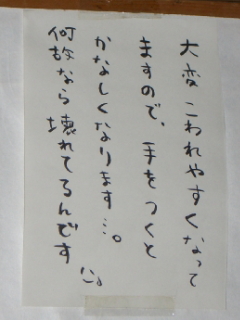 大変こわれやすくなって
ますので、手をつくと
かなしくなります…。
何故なら壊れてるんです